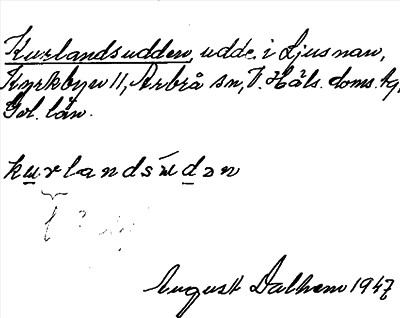 Kurlandsudden, udde, i Ljusnan,
Kyrkbyn 11, Arbrå sn, V. Häls. doms. hg,
Gvl. län.
kurlandsúdən
August Dalhem 1947